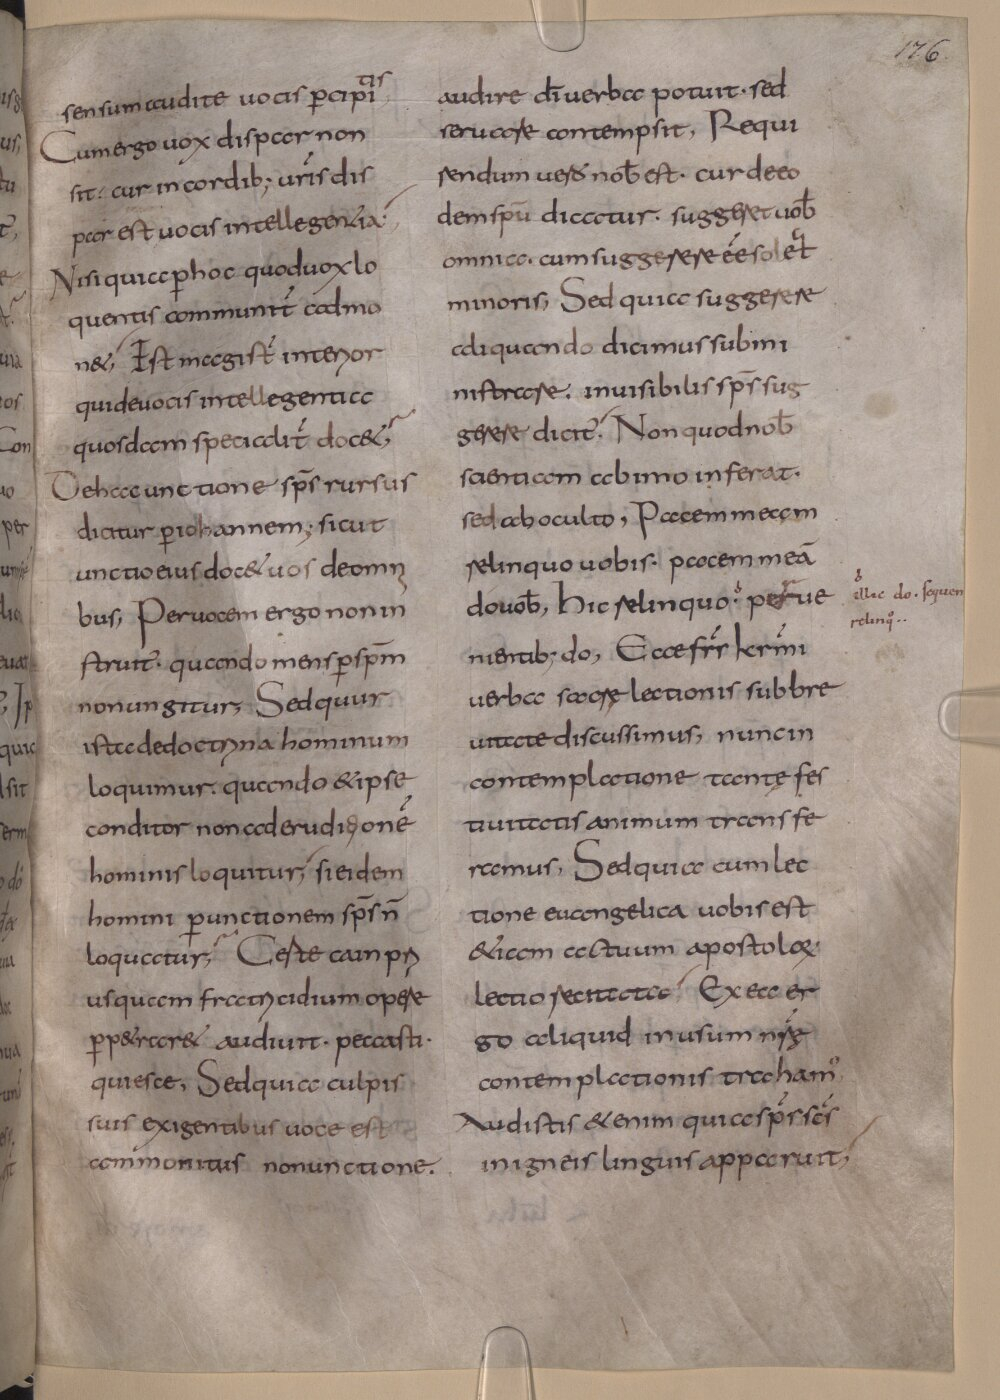 176
sensum audite uocis p̄cipitis
Cum ergo uox dispar non
sit. cur in cordib; ur̄is dis
par est uocis intellegentia;
Nisi quia p̄ hoc quod uox lo
quentis communit̄ admo
n&; Est magist̄ interior
qui de uocis intellegentia
quosdam specialit̄ doc&;
De hac unctione sp̄s rursus
dicitur p̄ iohannem; sicut
unctio eius doc& uos de omni
bus, Per uocem ergo non in
struit̄. quando mens p̄ sp̄m
non ungitur, Sed quur
ista de doctrina hominum
loquimur. quando & ipse
conditor non ad eruditionē
hominis loquitur, si eidem
homini p̄ unctionem sp̄s n̄
loquatur; Certe cain pri
usquam fratricidium opere
p̄p&rar& audiuit. peccasti.
quiesce, Sed quia culpis
suis exigentibus uoce est
ammonitus non unctione.
audire dī uerba potuit. sed
seruare contempsit, Requi
rendum uero nob̄ est. cur de eo
dem spū dicatur. suggeret uob̄
omnia. cum suggerere ēē solet
minoris, Sed quia suggerere
aliquando dicimus submi
nistrare. inuisibilis sp̄s sug
gerere dicit̄. Non quod nob̄
scientiam ab imo inferat.
sed ab oculto, Pacem meam
relinquo uobis. pacem meā
do uob̄, hic relinquo. perue
nientib; do, Ecce fr̄s kr̄mi
uerba sacre lectionis sub bre
uitate discussimus, nunc in
contemplatione tante fes
tiuitatis animum transfe
ramus, Sed quia cum lec
tione euangelica uobis est
&iam actuum apostolor;
lectio recitata; Ex ea er
go aliquid in usum nr̄e
contemplationis traham;
Audistis &enim quia sp̄s sc̄s
in igneis linguis apparuit,
illic do. sequen
relinq̄..